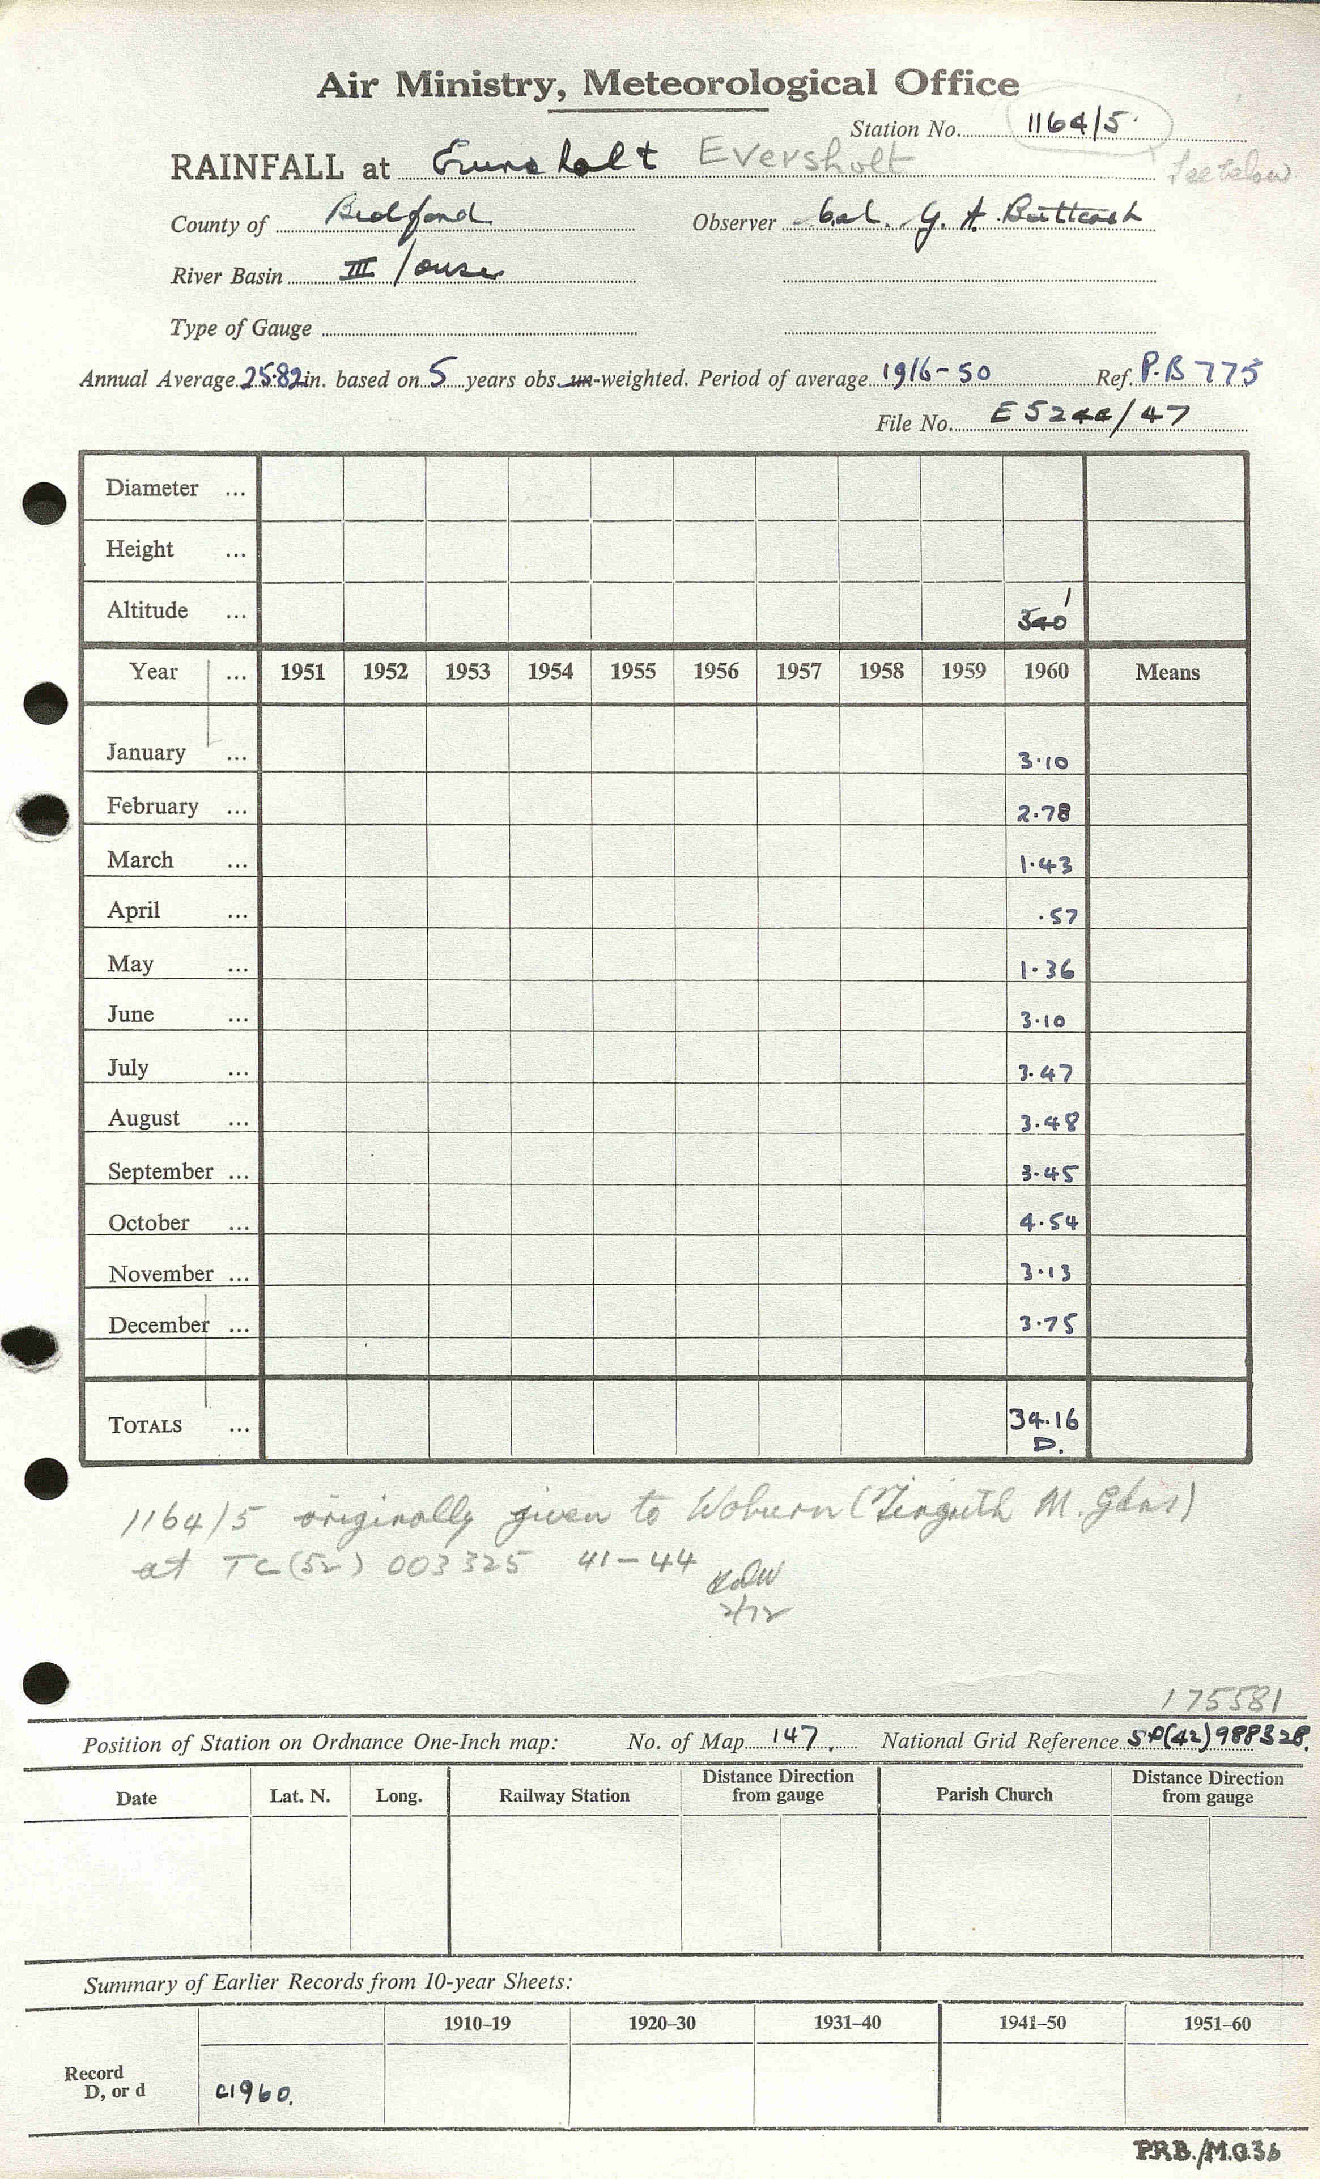 Air Ministry, Meteorological Office
Station No. 1164/5
RAINFALL at Eversholt Eversholt See below
County of Bedford Observer Col. G. A. Buttcash
River Basin III / ouse
Type of Gauge
Annual Average 25.82 in. based on 5 years obs. un-weighted. Period of average 1916-50 Ref. P.B 775
File No. E 5244/47
Diameter ...
Height ...
Altitude ... 340'
Year ... 1951 1952 1953 1954 1955 1956 1957 1958 1959 1960 Means
January ... 3.10
February ... 2.78
March ... 1.43
April ... .57
May ... 1.36
June ... 3.10
July ... 3.47
August ... 3.48
September ... 3.45
October ... 4.54
November ... 3.13
December ... 3.75
TOTALS ... 34.16
D.
1164/5 originally given to Woburn ( M. Gdns)
at TL(52) 003325 41-44
2/72
175581
Position of Station on Ordnance One-Inch map: No. of Map 147. National Grid Reference SP(42)988328.
Date Lat. N. Long. Railway Station Distance Direction from gauge Parish Church Distance Direction from gauge
Summary of Earlier Records from 10-year Sheets:
1910-19 1920-30 1931-40 1941-50 1951-60
Record
D, or d c1960.
P.R.B./M.O.36